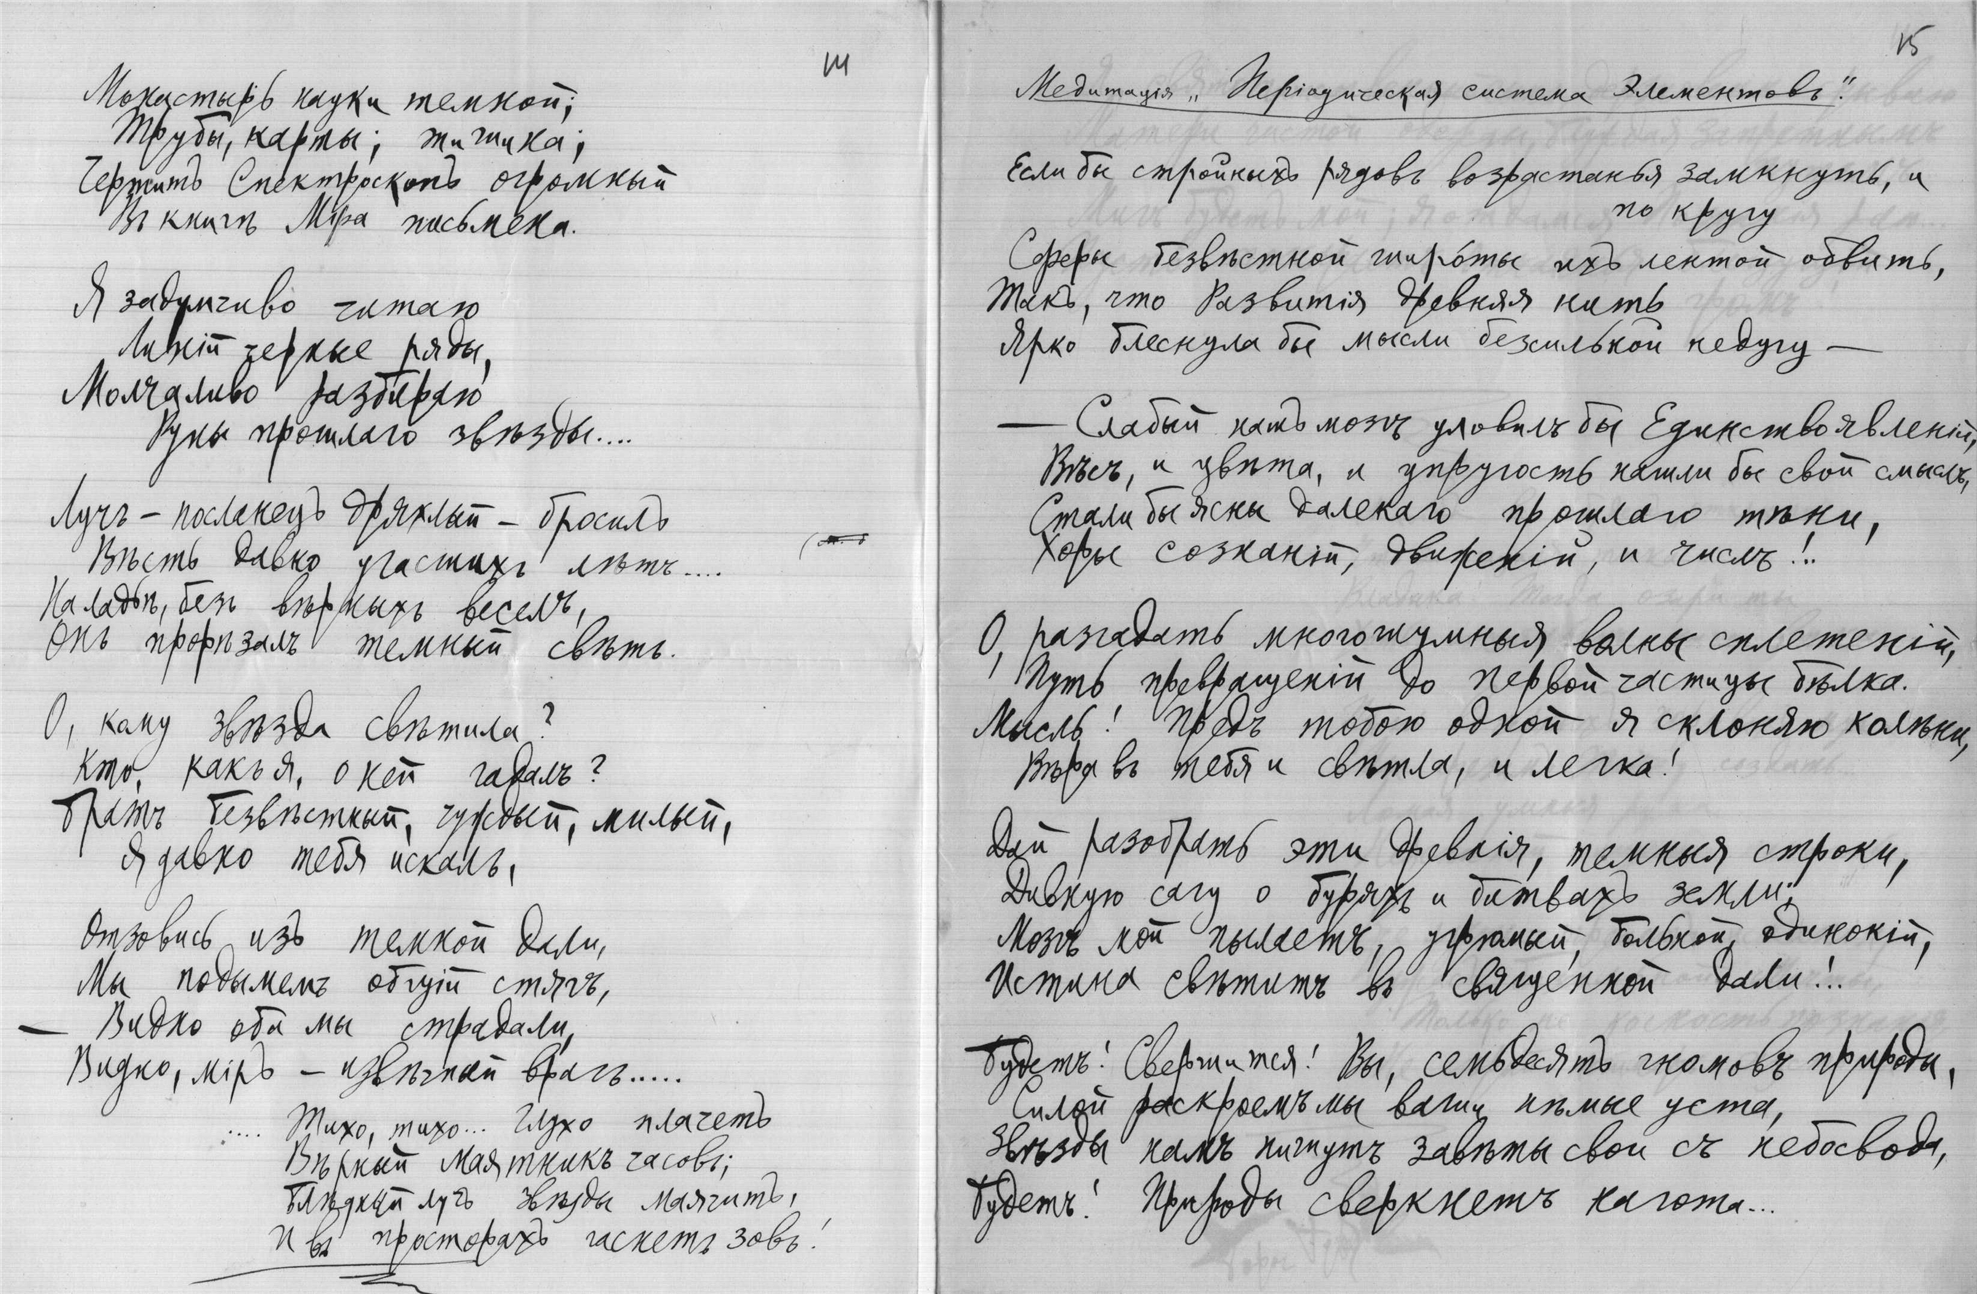 14
Монастырь науки темной;
Трубы, карты; тишина;
Чертитъ Спектроскопъ огромный
Въ книгѣ Мiра письмена.
Я задумчиво читаю
Линiй черные ряды,
Молчаливо разбираю
Руны прошлаго звѣзды....
Лучъ – посланецъ дряхлый – бросилъ
Вѣсть давно угасшихъ лѣтъ....
На ладьѣ, безъ вѣрныхъ веселъ,
Онъ прорѣзалъ темный свѣтъ.
О, кому звѣзда свѣтила?
Кто, какъ я, о ней гадалъ?
Братъ безвѣстный, чуждый, милый,
Я давно тебя искалъ,
Отзовись изъ темной дали,
Мы подымемъ общiй стягъ,
— Видно оба мы страдали,
Видно, мiръ – извѣчный врагъ.....
.... Тихо, тихо... Глухо плачетъ
Вѣрный маятникъ часовъ;
Блѣдный лучъ звѣзды маячитъ,
И въ просторахъ гаснетъ зовъ!
15
Медитацiя „Перiодическая система Элементовъ".
Если бы стройныхъ рядовъ возрастанья замкнуть, и
по кругу
Сферы безвѣстной широ́ты ихъ лентой обвить,
Такъ, что Развитiя древняя нить
Ярко блеснула бы мысли безсильной недугу —
— Слабый нашъ мозгъ уловилъ бы Единство явленiй,
Вѣсъ, и цвѣта, и упругость нашли бы свой смыслъ,
Стали бы ясны далекаго прошлаго тѣни,
Хоры сознанiй, движенiй, и числъ!..
О, разгадать многошумныя волны сплетенiй,
Путь превращенiй до первой частицы бѣлка.
Мысль! Предъ тобою одной я склоняю колѣни,
Вѣра въ тебя и свѣтла, и легка!
Дай разобрать эти древнiя, темныя строки,
Дивную сагу о буряхъ и битвахъ земли;
Мозгъ мой пылаетъ, угрюмый, больной, одинокiй,
Истина свѣтитъ въ священной дали!..
Будетъ! Свершится! Вы, семьдесятъ гномовъ природы,
Силой раскроемъ мы ваши нѣмые уста,
Звѣзды намъ пишутъ завѣты свои съ небосвода,
Будетъ! Природы сверкнетъ нагота...